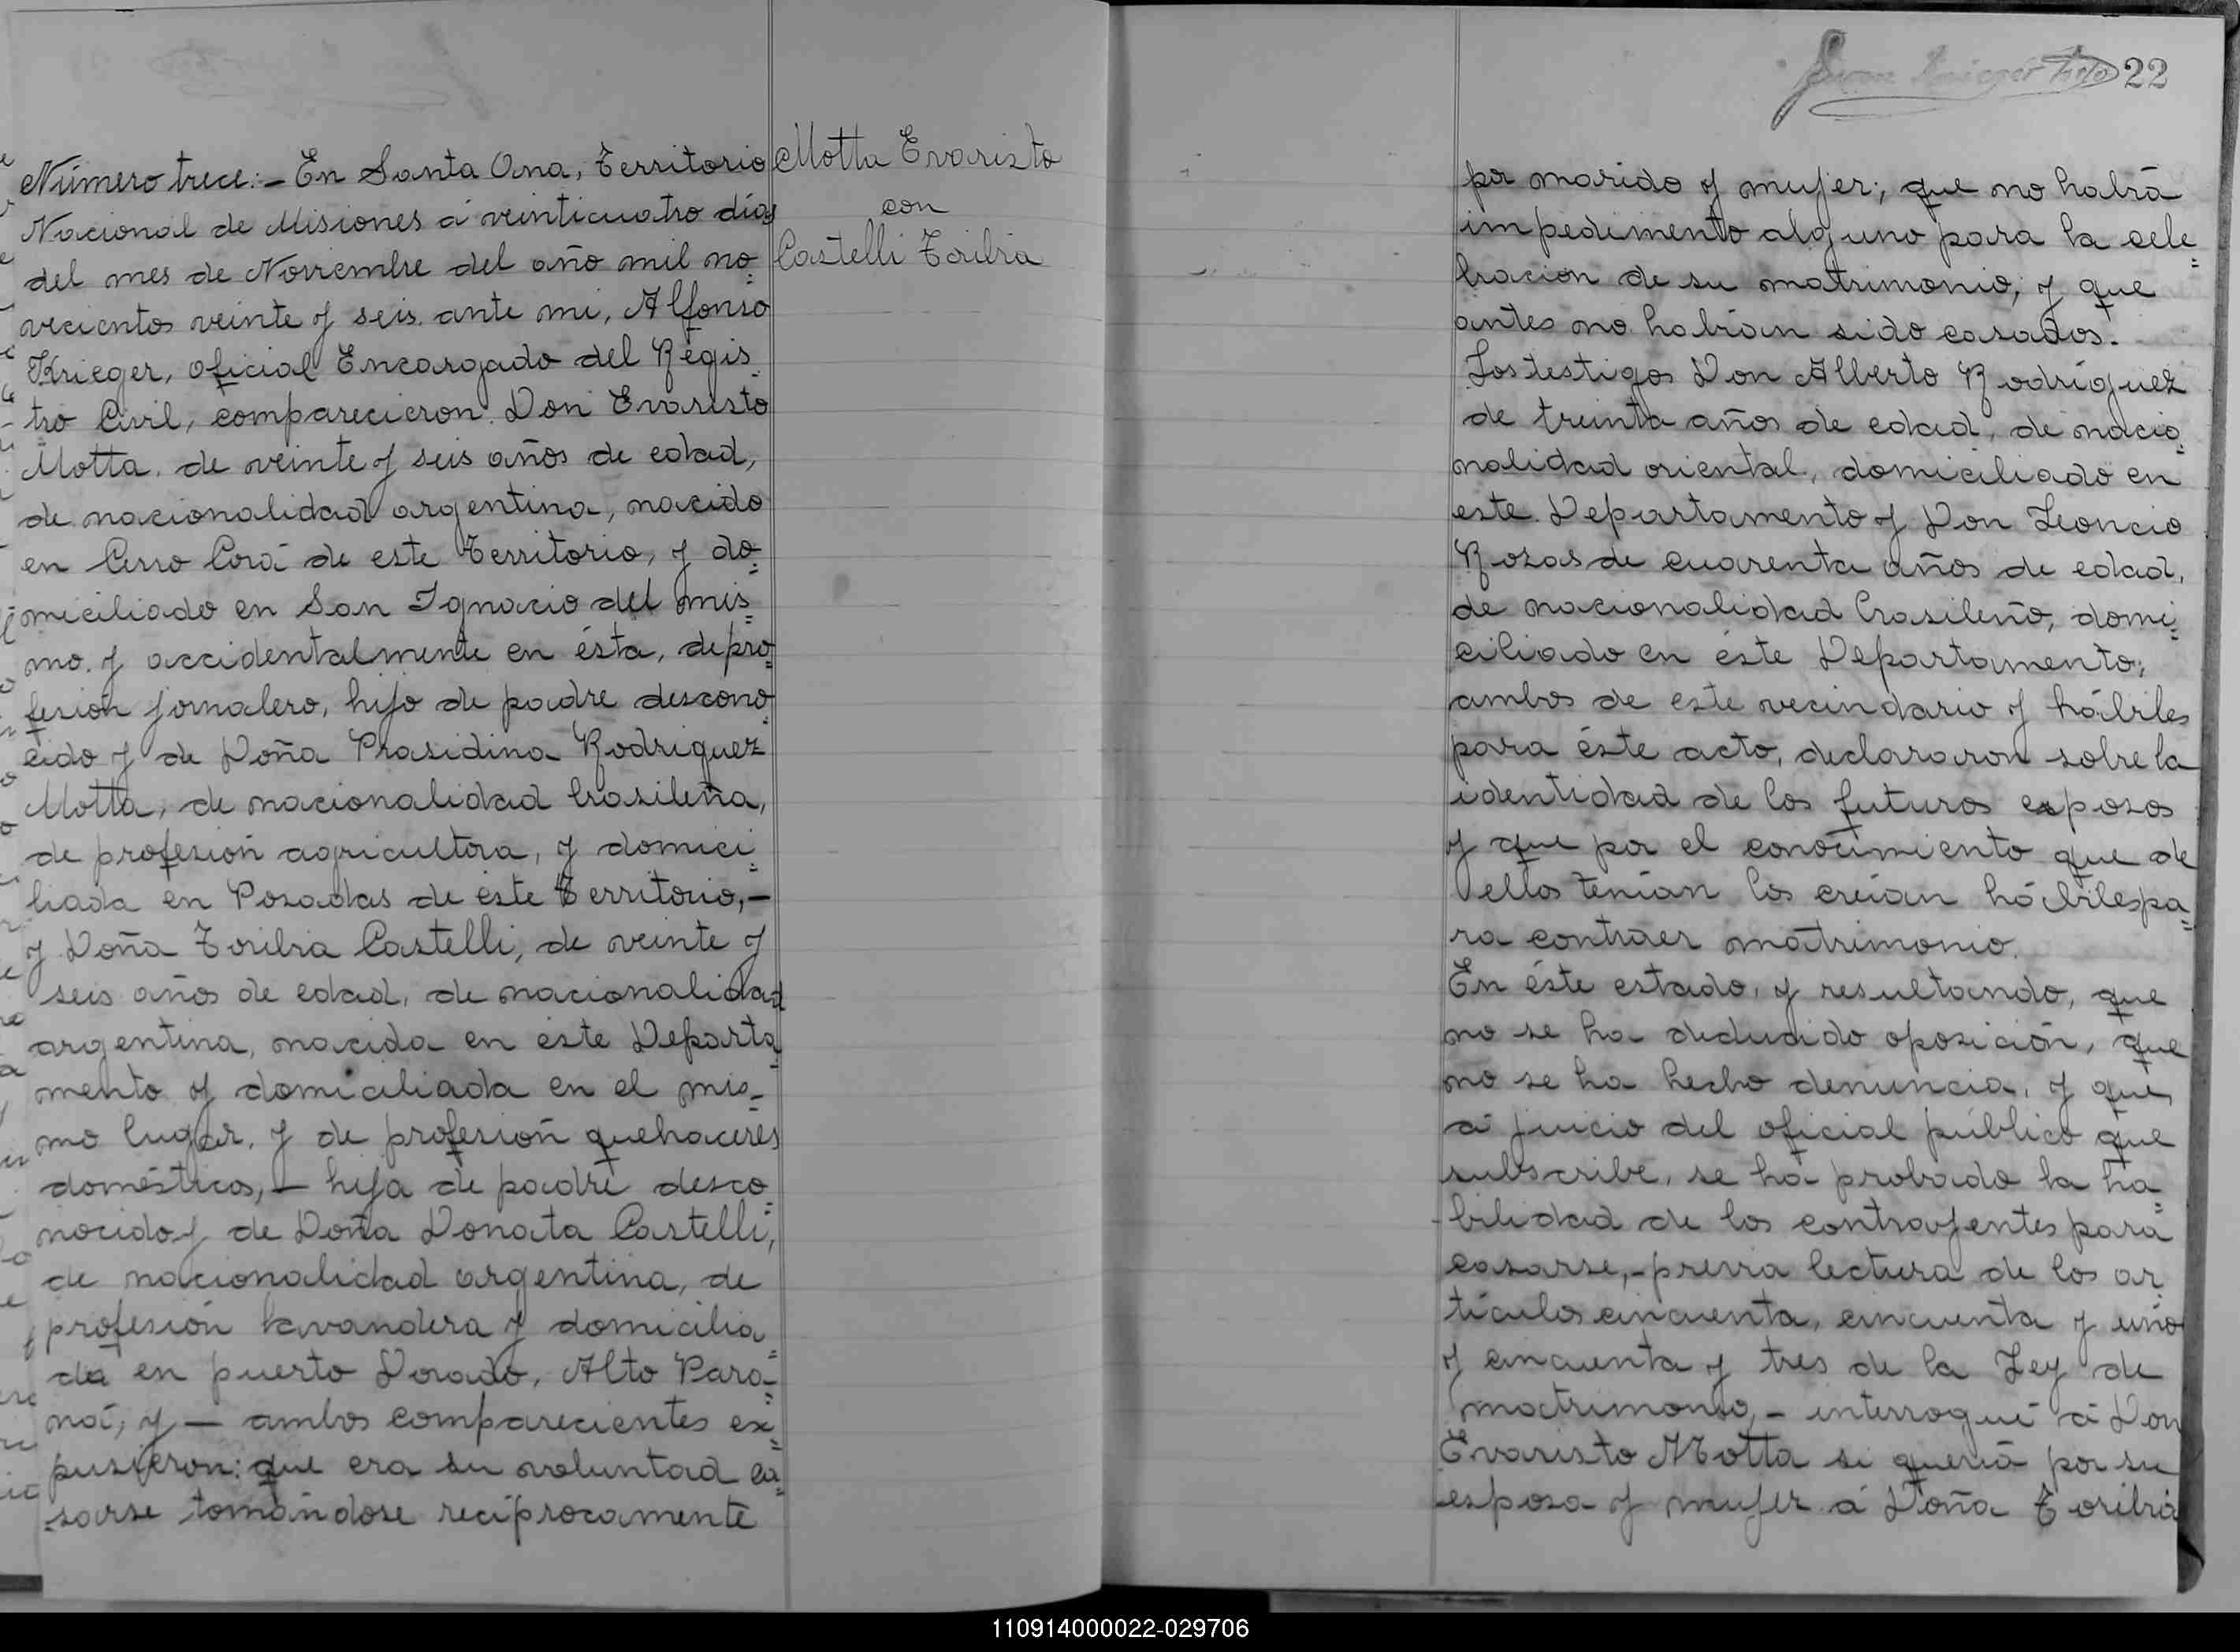 Número trece:- En Santa Ana, Territorio
Nacional de Misiones á veinticuatro días
del mes de Noviembre del año mil no=
vecientos veinte y seis. ante mi, Alfonso
Krieger, oficial Encargado del Regis=
tro Civil, comparecieron. Don Evaristo
Motta. de veinte y seis años de edad,
de nacionalidad argentina, nacido
en Cerro Corá de este Territorio, y do=
miciliado en San Ignacio del mis=
mo. y accidentalmente en ésta, de pro=
fesión jornalero, hijo de padre descono=
cido y de Doña Prasidina Rodriguez
Motta, de nacionalidad brasileña,
de profesión agricultora, y domici=
liada en Posadas de éste Territorio,-
y Doña Toribia Castelli, de veinte y
seis años de edad, de nacionalidad
argentina, nacida en éste Departa=
mento y domiciliada en el mis=
mo lugar, y de profesión quehaceres
domésticos,- hija de padre desco=
nocido y de Doña Donata Castelli,
de nacionalidad argentina, de
profesión lavandera y domicilia=
da en puerto Dorado, Alto Para=
ná, y - ambos comparecientes ex=
pusieron: que era su voluntad ca=
sarse tomándose recíprocamente
Motta Evaristo
con
Castelli Toribia
22
por marido y mujer; que no había
impedimento alguno para la cele=
bración de su matrimonio; y que
antes no habían sido casados.
Los testigos Don Alberto Rodríguez
de treinta años de edad, de nacio=
nalidad oriental, domiciliado en
este Departamento y Don Leoncio
Rosas de cuarenta años de edad,
de nacionalidad brasileño, domi=
ciliado en éste Departamento;
ambos de este vecindario y hábiles
para éste acto, declararon sobre la
identidad de los futuros esposos
y que por el conocimiento que de
ellos tenían los creían hábiles pa=
ra contraer matrimonio.
En éste estado, y resultando, que
no se ha deducido oposición, que
no se ha hecho denuncia, y que,
á juicio del oficial público que
subscribe, se ha probado la ha=
bilidad de los contrayentes para
casarse,- previa lectura de los ar=
tículos cincuenta, cincuenta y uno
y cincuenta y tres de la Ley de
matrimonio,- interrogué á Don
Evaristo Motta si quería por su
esposa y mujer á Doña Toribia
110914000022-029706